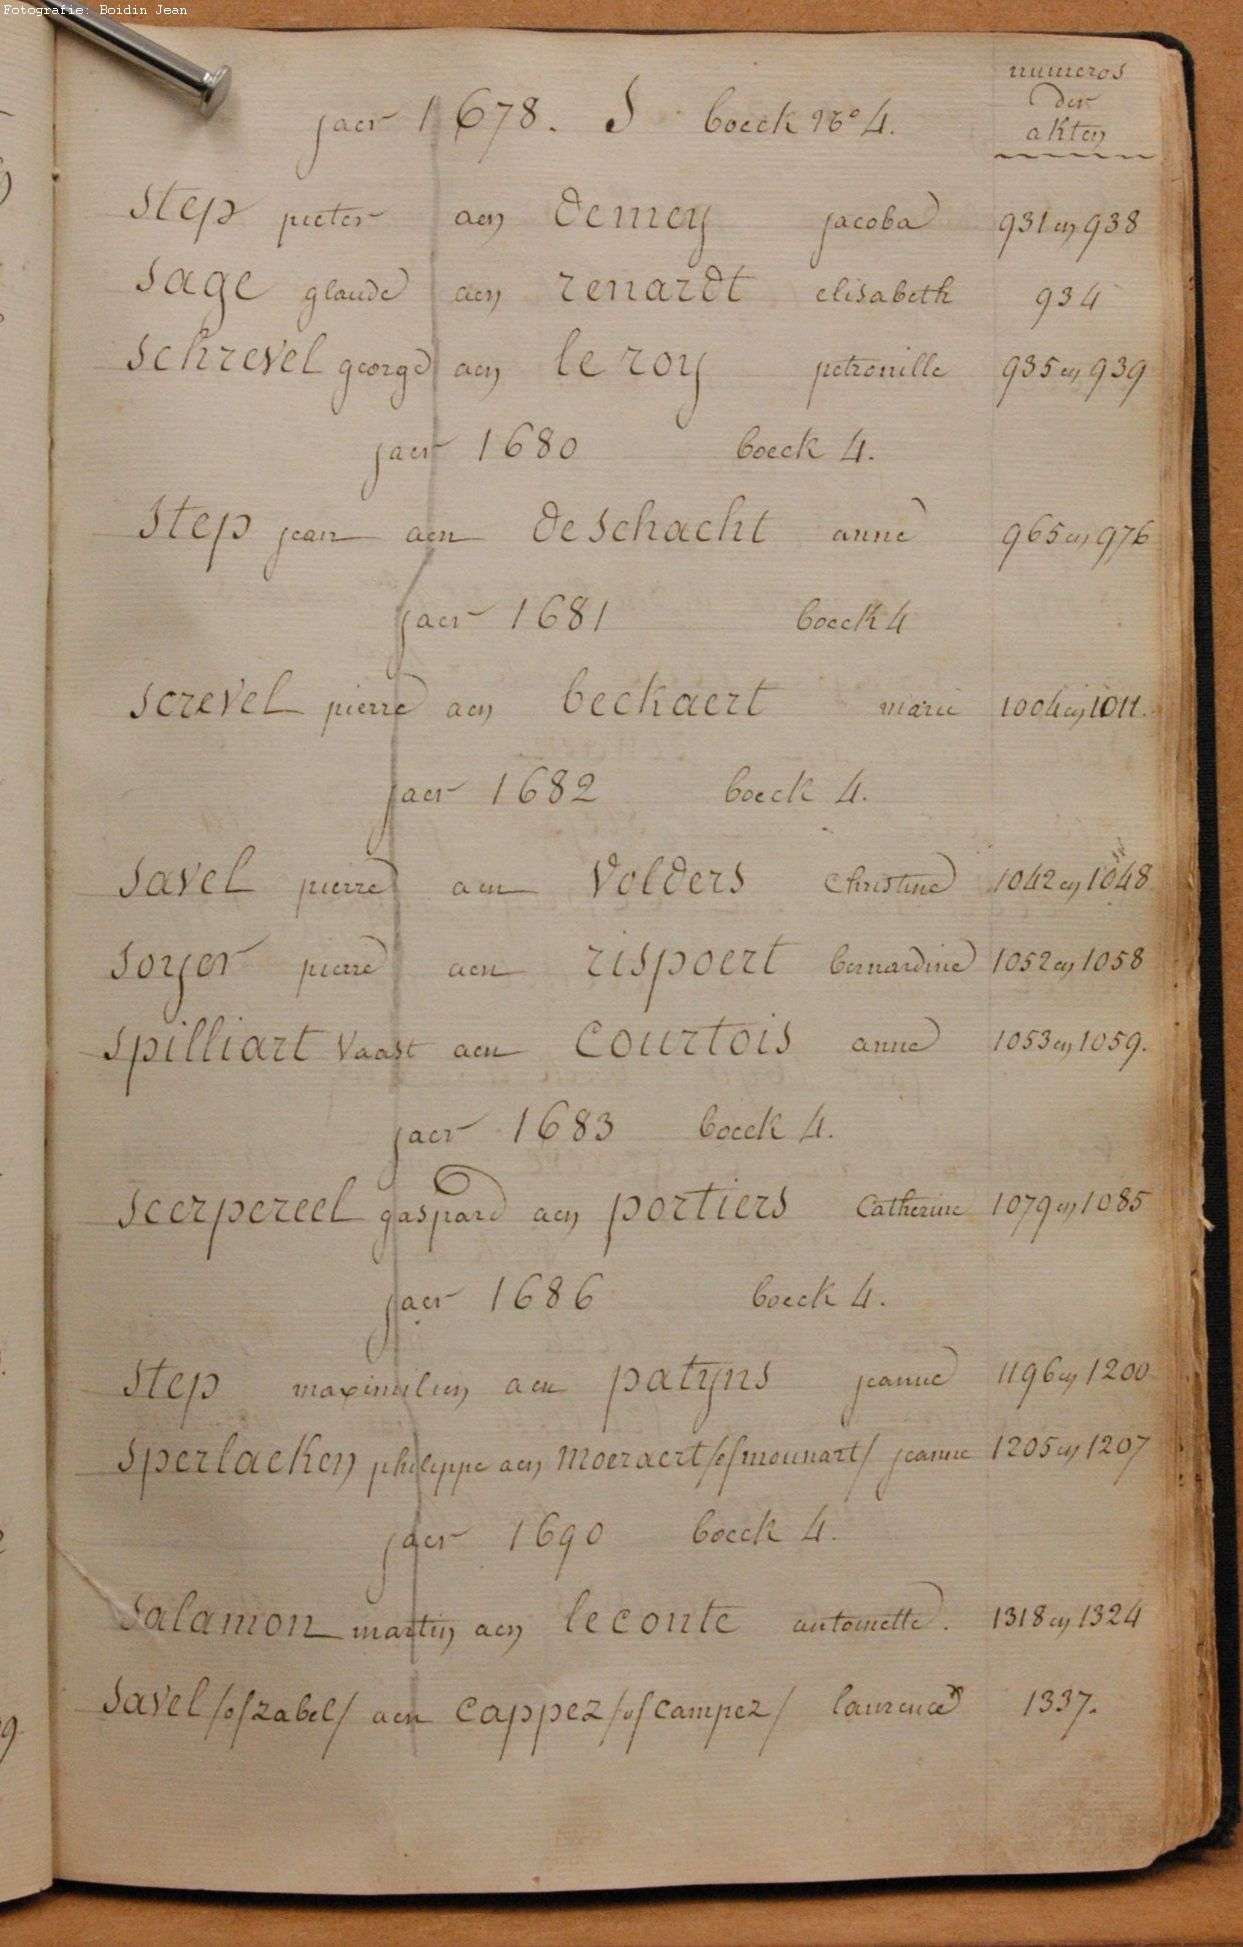 Fotografie: Boidin Jean
numeros
der
akten
jaer 1678. S boeck No 4.
step pieter aen demey jacoba 931 en 938
sage glaude aen renardt elisabeth 934
schrevel george aen le roy petronille 935 en 939
jaer 1680 boeck 4.
step jean aen deschacht anne 965 en 976
jaer 1681 boeck 4
screvel pierre aen beckaert marie 1004 en 1011.
jaer 1682 boeck 4.
savel pierre aen volders christine 1042 en 1048
soyer pierre aen rispoert bernardine 1052 en 1058
spilliart vaast aen courtois anne 1053 en 1059.
jaer 1683 boeck 4.
scerpereel gaspard aen portiers catherine 1079 en 1085
jaer 1686 boeck 4.
step maximilien aen patyns jeanne 1196 en 1200
sperlacken philippe aen moeraert /of mounart/ jeanne 1205 en 1207
jaer 1690 boeck 4.
salamon martin aen leconte antoinette. 1318 en 1324
savel /of zabel/ aen cappez /of campez/ laurence 1337.